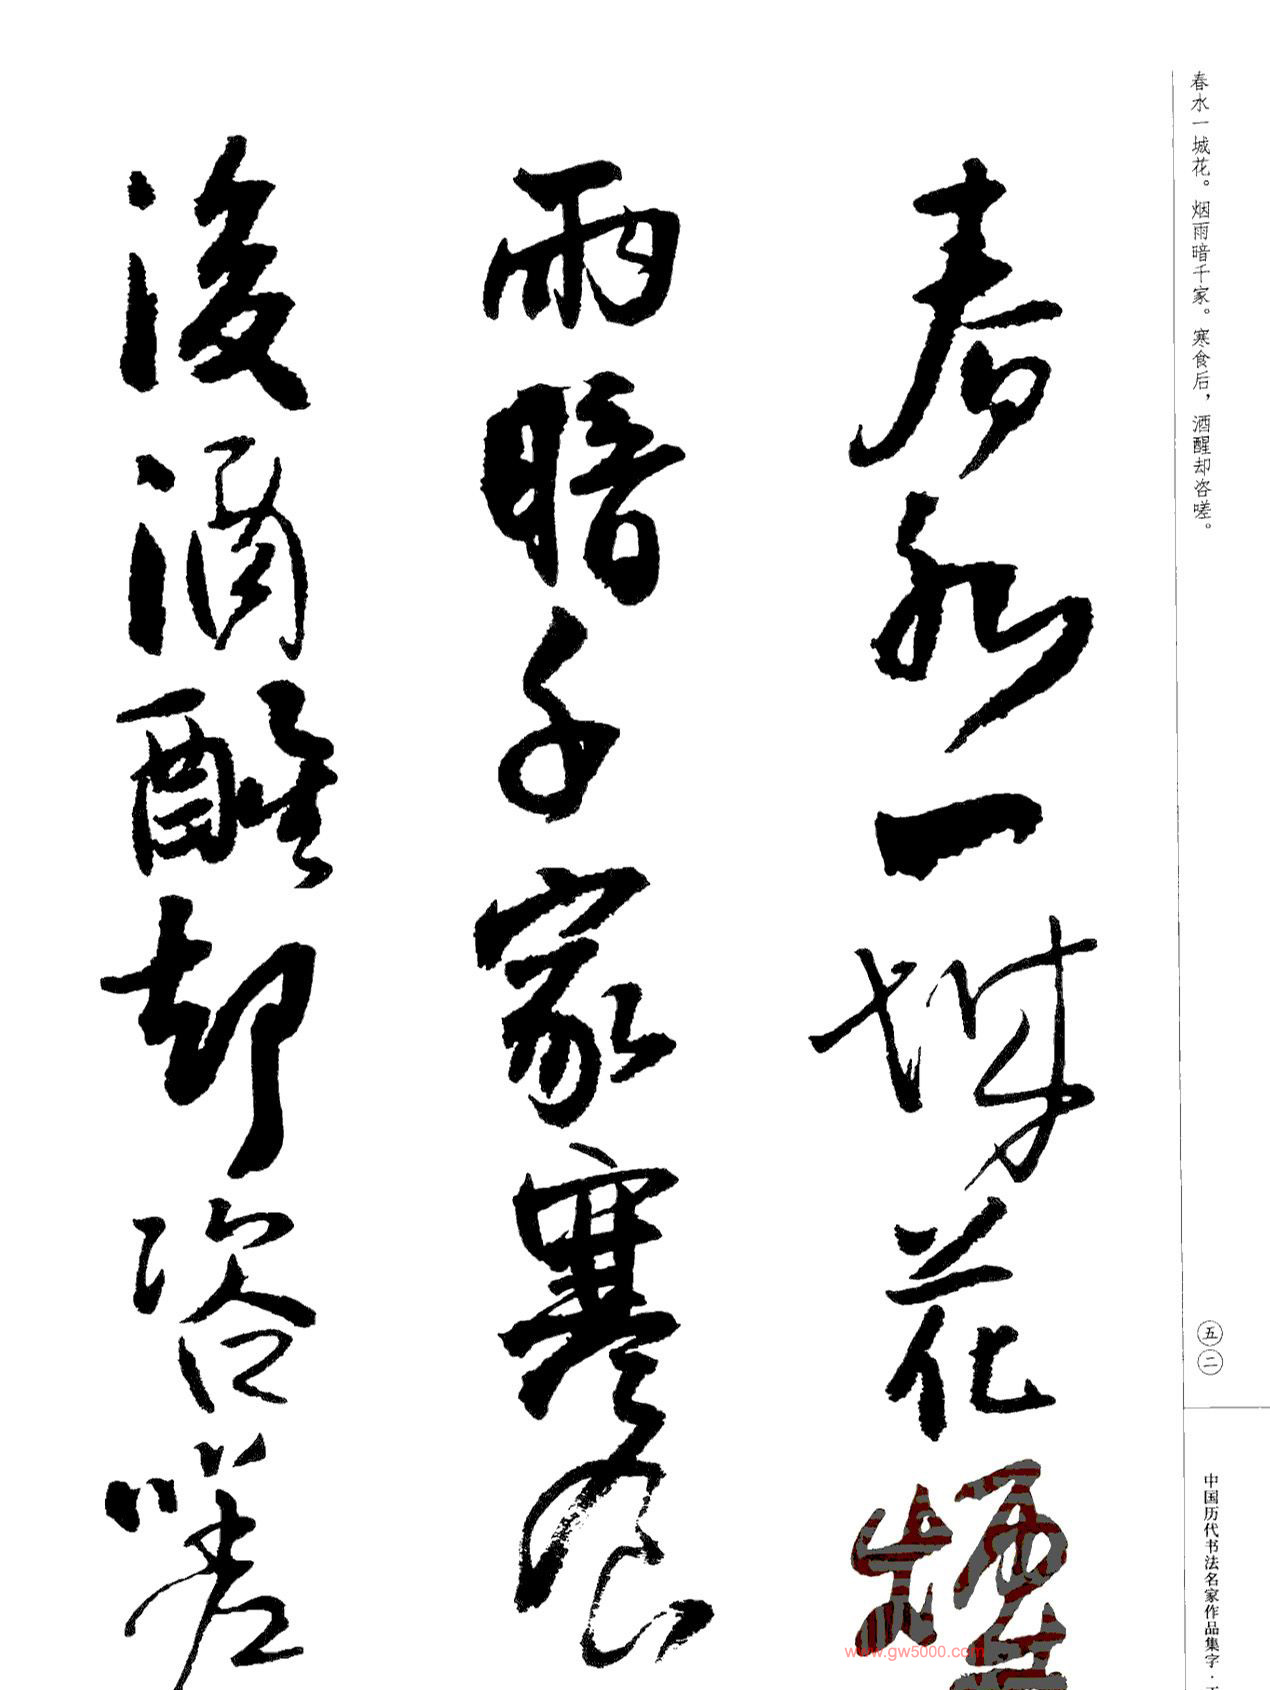 春水一城花。烟雨暗千家。寒食后，酒醒却咨嗟。
五二
中国历代书法名家作品集字·
春水一城花煙
雨暗千家寒食
後酒醒却咨嗟
www.gw5000.com